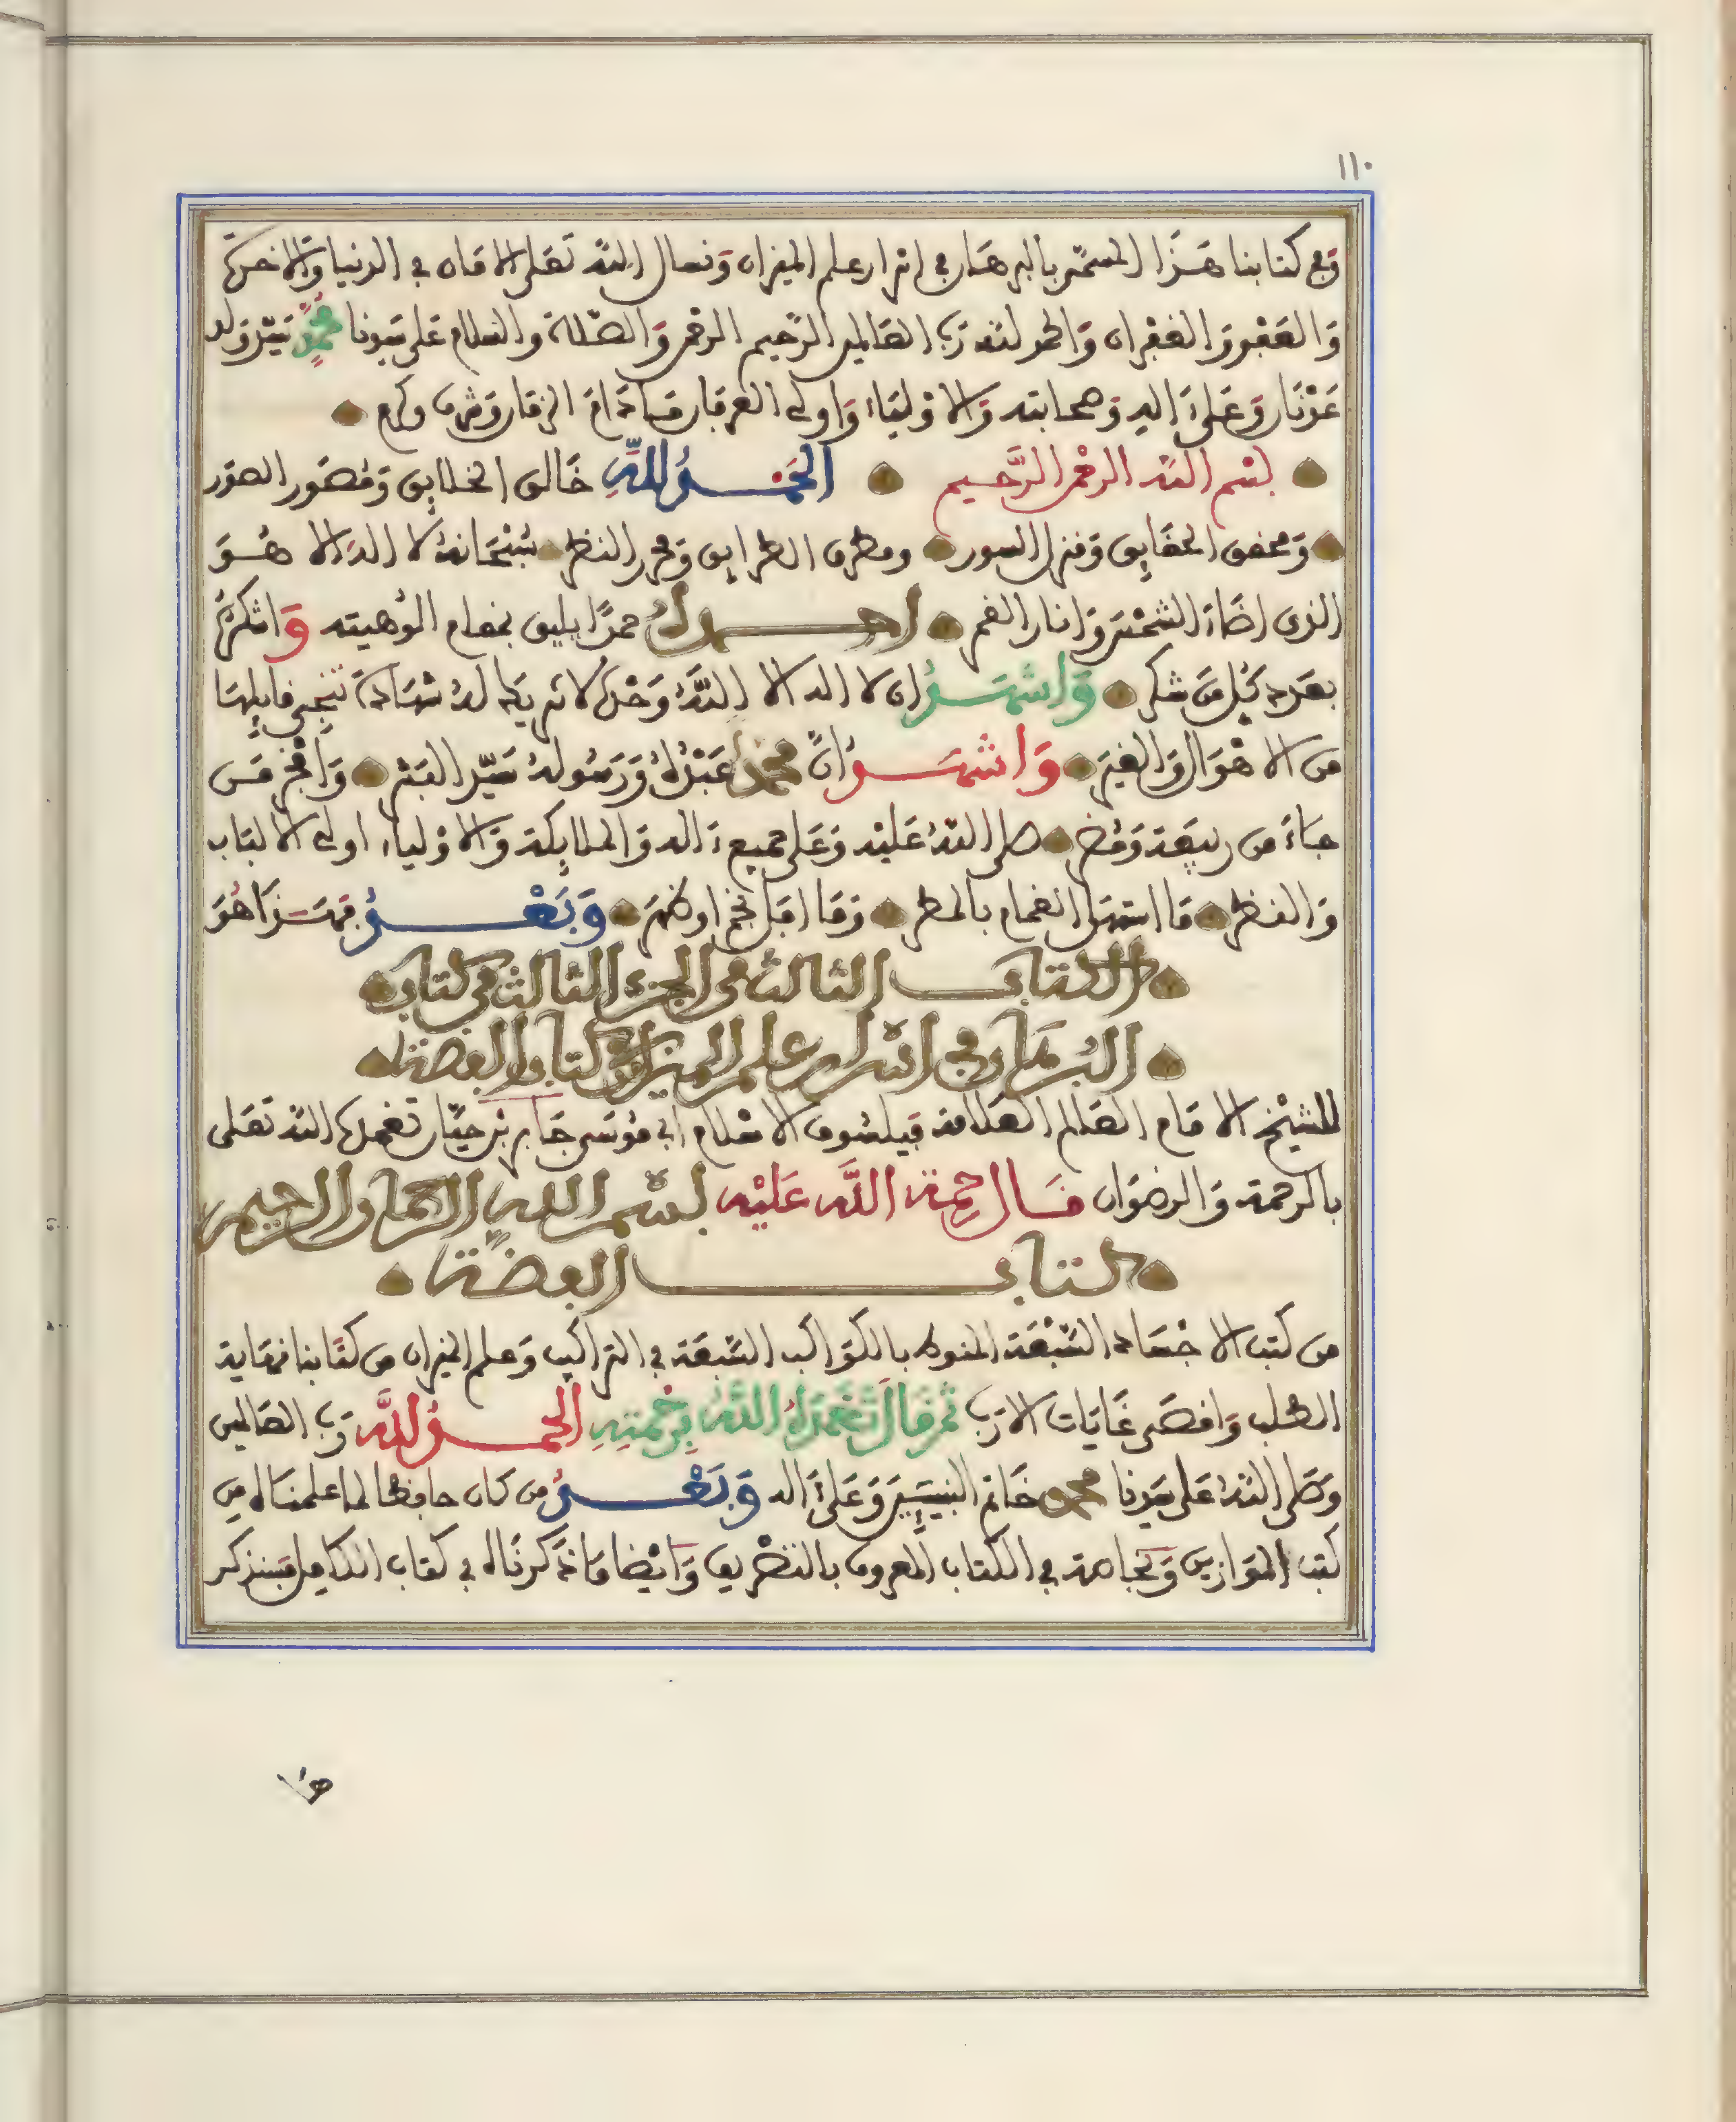 ١١٠
وفي كتابنا هذا المسمى بالبرهان في اسرار علم الميزان ونسال الله تعلى الامان في الدنيا والاخرة
والعفو والغفران والحمد لله رب العالمين الرحيم الرحمن والصلاة والسلام على سيدنا محمد سيد ولد
عدنان وعلى ءاله وصحابته والاولياء واولي العرفان ما دام الزمان وشرف وكرم
بسم الله الرحمن الرحيم الحمد لله خالق الخلايق ومصور الصور
ومحقق الحقايق ومنزل السور ومطرق الطرايق ومحرر النظر سبحانه لا اله الا هو
الذي اضاء الشمس وانار القمر احمدك حمدا يليق بمقام الوهيته واشكره
بعدد كل من شكر واشهد ان لا اله الا الله وحده لا شريك له شهادة تنجي قايلها
من الاهوال والغير واشهد ان محمدا عبده ورسوله سيد البشر وافخر من
جاء من ربيعة ومضر صلى الله عليه وعلى جميع ءاله والملايكة والاولياء اولي الالباب
والفطر ما استهل الغمام بالمطر وما افل نجم او ظهر وبعد فهذا هو
الكتاب الثالث من الجزء الثالث من كتاب
البرهان في اسرار علم الميزان وهو كتاب الفضة
للشيخ الامام العالم العلامة فيلسوف الاسلام ابي موسى جابر بن حيان تغمده الله تعلى
بالرحمة والرضوان قال رحمة الله عليه بسم الله الرحمان الرحيم
كتاب الفضة
من كتب الاجساد السبعة المنوطة بالكواكب السبعة في التراكيب وعلم الميزان من كتابنا نهاية
الطلب واقصى غايات الارب ثم قال تغمده الله برحمته الحمد لله رب العالمين
وصلى الله على سيدنا محمد خاتم النبيين وعلى ءاله وبعد من كان حافظا لما علمناه من
كتب الموازين وبخاصة في الكتاب المعروف بالتصريف وايضا ما ذكرناه في كتاب الكامل فسنذكر